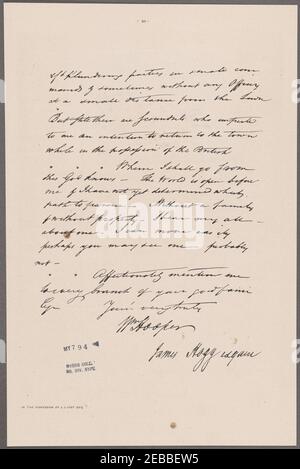 of Plundering parties in small com
mands & sometimes without any Officer
at a small distance from the Town
But yet there are Scoundrels who impute
to me an intention to return to the town
while in the possession of the British
" " " Where I shall go from
this God knows — the World is open before
me I have not yet determined which
path to pursue — Without a family
& without property I bear my all
about me I can move easily
perhaps you may see me probably
not —
" " " Affectionately mention me
to every branch of your good family
Yours very truly
Wm Hooper
James Hogg esquire
MY794
EMMET COLL.
MS. DIV. NYPL
IN THE POSSESSION OF